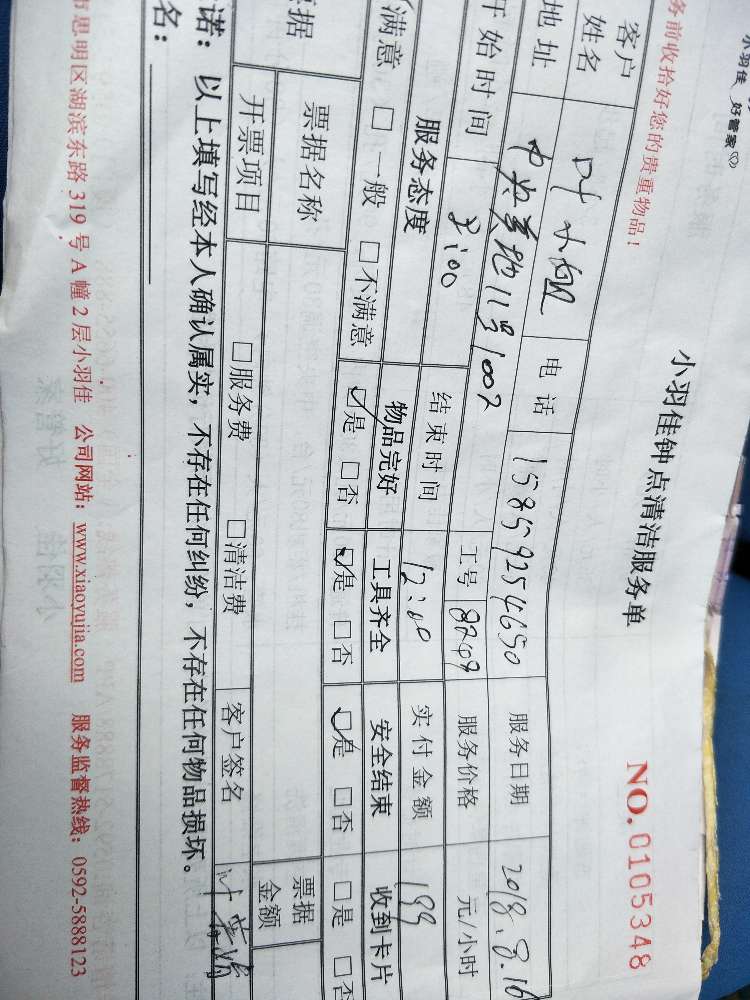 小羽佳 好管家
务前收拾好您的贵重物品！
小羽佳钟点清洁服务单
NO.0105348
客户姓名 电话 15859254650 服务日期 2018.8.16
地址 中央美地11号1007 工号 8249 服务价格 元/小时
开始时间 8:00 结束时间 12:00 实付金额 199
服务态度 物品完好 工具齐全 安全结束 收到卡片
满意 □一般 □不满意 ☑是 □否 ☑是 □否 ☑是 □否 □是 □否
票据 票据名称 票据金额
开票项目 □服务费 □清洁费 客户签名
诺：以上填写经本人确认属实，不存在任何纠纷，不存在任何物品损坏。
名：
市思明区湖滨东路319号A幢2层小羽佳 公司网站：www.xiaoyujia.com 服务监督热线：0592-5888123